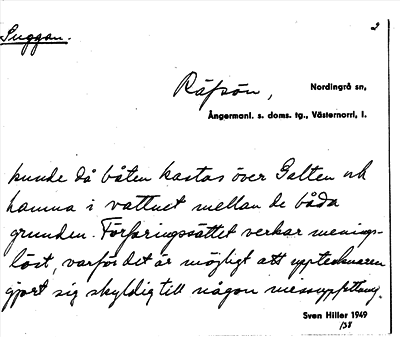 Suggan.
2
Räfsön, Nordingrå sn,
Ångermanl. s. doms. tg., Västernorrl. l.
kunde då båten kastas över Galten och
hamna i vattnet mellan de båda
grunden. Förfaringssättet verkar menings-
löst, varför det är möjligt att upptecknaren
gjort sig skyldig till någon missuppfattning.
Sven Hiller 1949
/58